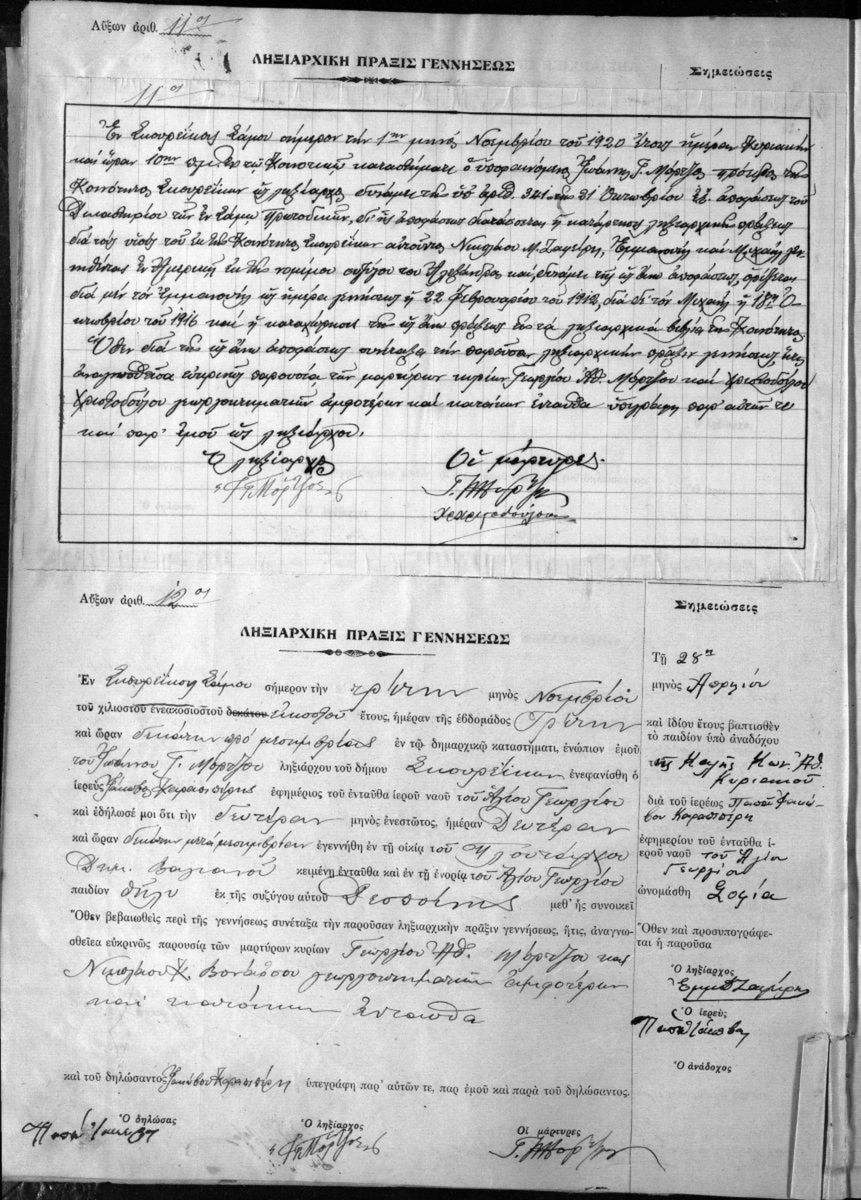 Αὔξων ἀριθ. 11ος
ΛΗΞΙΑΡΧΙΚΗ ΠΡΑΞΙΣ ΓΕΝΝΗΣΕΩΣ
Σημειώσεις
11ος
Ἐν Σκουρέϊκοις Σάμου σήμερον τὴν 1ην μηνὸς Νοεμβρίου τοῦ 1920 ἔτους ἡμέραν Κυριακὴν
καὶ ὥραν 10ην π.μ. ἐν τῷ Κοινοτικῷ καταστήματι ὁ ὑποφαινόμενος Ἰωάννης Γ. Μόρτζος πρόεδρος τῆς
Κοινότητος Σκουρεΐκων ὡς ληξίαρχος δυνάμει τῆς ὑπ' ἀριθ. 341 τῆς 21 Ὀκτωβρίου ἀποφάσεως τοῦ
Δικαστηρίου τῶν ἐν Σάμῳ Πρωτοδικῶν, δι' ἧς ἀποφάσεως διατάσσεται ἡ κατάρτισις ληξιαρχικῆς πράξεως
διὰ τοὺς υἱοὺς τοῦ ἐκ τῆς Κοινότητος Σκουρεΐκων Νικολάου Μ. Ζαφείρη, Ἐμμανουὴλ καὶ Μιχαὴλ γεν-
νηθέντας ἐν Ἀμερικῇ ἐκ τῆς νομίμου συζύγου του καὶ δυνάμει τῆς ὡς ἄνω ἀποφάσεως ὁρίζεται
διὰ μὲν τὸν Ἐμμανουὴλ ὡς ἡμέρα γεννήσεως ἡ 22 Φεβρουαρίου τοῦ διὰ δὲ τὸν Μιχαὴλ ἡ 18η Ὀ-
κτωβρίου τοῦ 1916 καὶ ἡ καταχώρησις τῆς ὡς ἄνω πράξεως εἰς τὰ ληξιαρχικὰ βιβλία τῆς Κοινότητος
Ὅθεν διὰ τῆς ὡς ἄνω ἀποφάσεως συνέταξα τὴν παροῦσαν ληξιαρχικὴν πρᾶξιν γεννήσεως ἥτις
ἀναγνωσθεῖσα εὐκρινῶς παρουσίᾳ τῶν μαρτύρων κυρίων Γεωργίου Ἀθ. Μόρτζου καὶ Χριστοδούλου
Χριστοδούλου γεωργοκτηματιῶν ἀμφοτέρων καὶ κατοίκων ἐνταῦθα ὑπεγράφη παρ' αὐτῶν τε
καὶ παρ' ἐμοῦ ὡς ληξιάρχου.
Ὁ ληξίαρχος
Οἱ μάρτυρες
Μόρτζος
Αὔξων ἀριθ. 12ος
ΛΗΞΙΑΡΧΙΚΗ ΠΡΑΞΙΣ ΓΕΝΝΗΣΕΩΣ
Ἐν Σκουρεΐκοις Σάμου σήμερον τὴν τρίτην μηνὸς Νοεμβρίου
τοῦ χιλιοστοῦ ἐνεακοσιοστοῦ δεκάτου εἰκοστοῦ ἔτους, ἡμέραν τῆς ἑβδομάδος Τρίτην
καὶ ὥραν δεκάτην πρὸ μεσημβρίας ἐν τῷ δημαρχικῷ καταστήματι, ἐνώπιον ἐμοῦ
τοῦ Ἰωάννου Γ. Μόρτζου ληξιάρχου τοῦ δήμου Σκουρεΐκων ἐνεφανίσθη ὁ
ἱερεὺς Ἰάκωβος Καραπιπέρης ἐφημέριος τοῦ ἐνταῦθα ἱεροῦ ναοῦ τοῦ Ἁγίου Γεωργίου
καὶ ἐδήλωσέ μοι ὅτι τὴν δευτέραν μηνὸς ἐνεστῶτος, ἡμέραν Δευτέραν
καὶ ὥραν δεκάτην μετὰ μεσημβρίαν ἐγεννήθη ἐν τῇ οἰκίᾳ τοῦ Πλουτάρχου
Δημ. κειμένῃ ἐνταῦθα καὶ ἐν τῇ ἐνορίᾳ τοῦ Ἁγίου Γεωργίου
παιδίον θῆλυ ἐκ τῆς συζύγου αὐτοῦ Δεσποίνης μεθ' ἧς συνοικεῖ
Ὅθεν βεβαιωθεὶς περὶ τῆς γεννήσεως συνέταξα τὴν παροῦσαν ληξιαρχικὴν πρᾶξιν γεννήσεως, ἥτις, ἀναγνω-
σθεῖσα εὐκρινῶς παρουσίᾳ τῶν μαρτύρων κυρίων Γεωργίου Ἀθ. Μόρτζου καὶ
Νικολάου Κ. γεωργοκτηματιῶν ἀμφοτέρων
καὶ κατοίκων ἐνταῦθα
καὶ τοῦ δηλώσαντος Ἰακώβου Καραπιπέρη ὑπεγράφη παρ' αὐτῶν τε, παρ ἐμοῦ καὶ παρὰ τοῦ δηλώσαντος.
Ὁ δηλώσας
Ὁ ληξίαρχος
Οἱ μάρτυρες
Μόρτζος
Σημειώσεις
Τῇ 28ῃ
μηνὸς Ἀπριλίου
καὶ ἰδίου ἔτους βαπτισθὲν
τὸ παιδίον ὑπὸ ἀναδόχου
τῆς Καλῆς Κων. Ἀθ.
Κυριακοῦ
διὰ τοῦ ἱερέως Παπᾶ Ἰακώ-
βου Καραπιπέρη
ἐφημερίου τοῦ ἐνταῦθα
ἱεροῦ ναοῦ τοῦ Ἁγίου
Γεωργίου
ὠνομάσθη Σοφία
Ὅθεν καὶ προσυπογράφε-
ται ἡ παροῦσα
Ὁ ληξίαρχος
Ἐμμ. Ζαφείρης
Ὁ ἱερεὺς
Παπᾶ Ἰάκωβος
Ὁ ἀνάδοχος